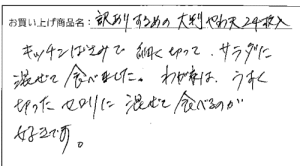 お買い上げ商品名：訳ありするめの大判やわ天24枚入
キッチンばさみで細く切って、サラダに
混ぜて食べました。わが家は、うすく
切ったセロリに混ぜて食べるのが
好きです。